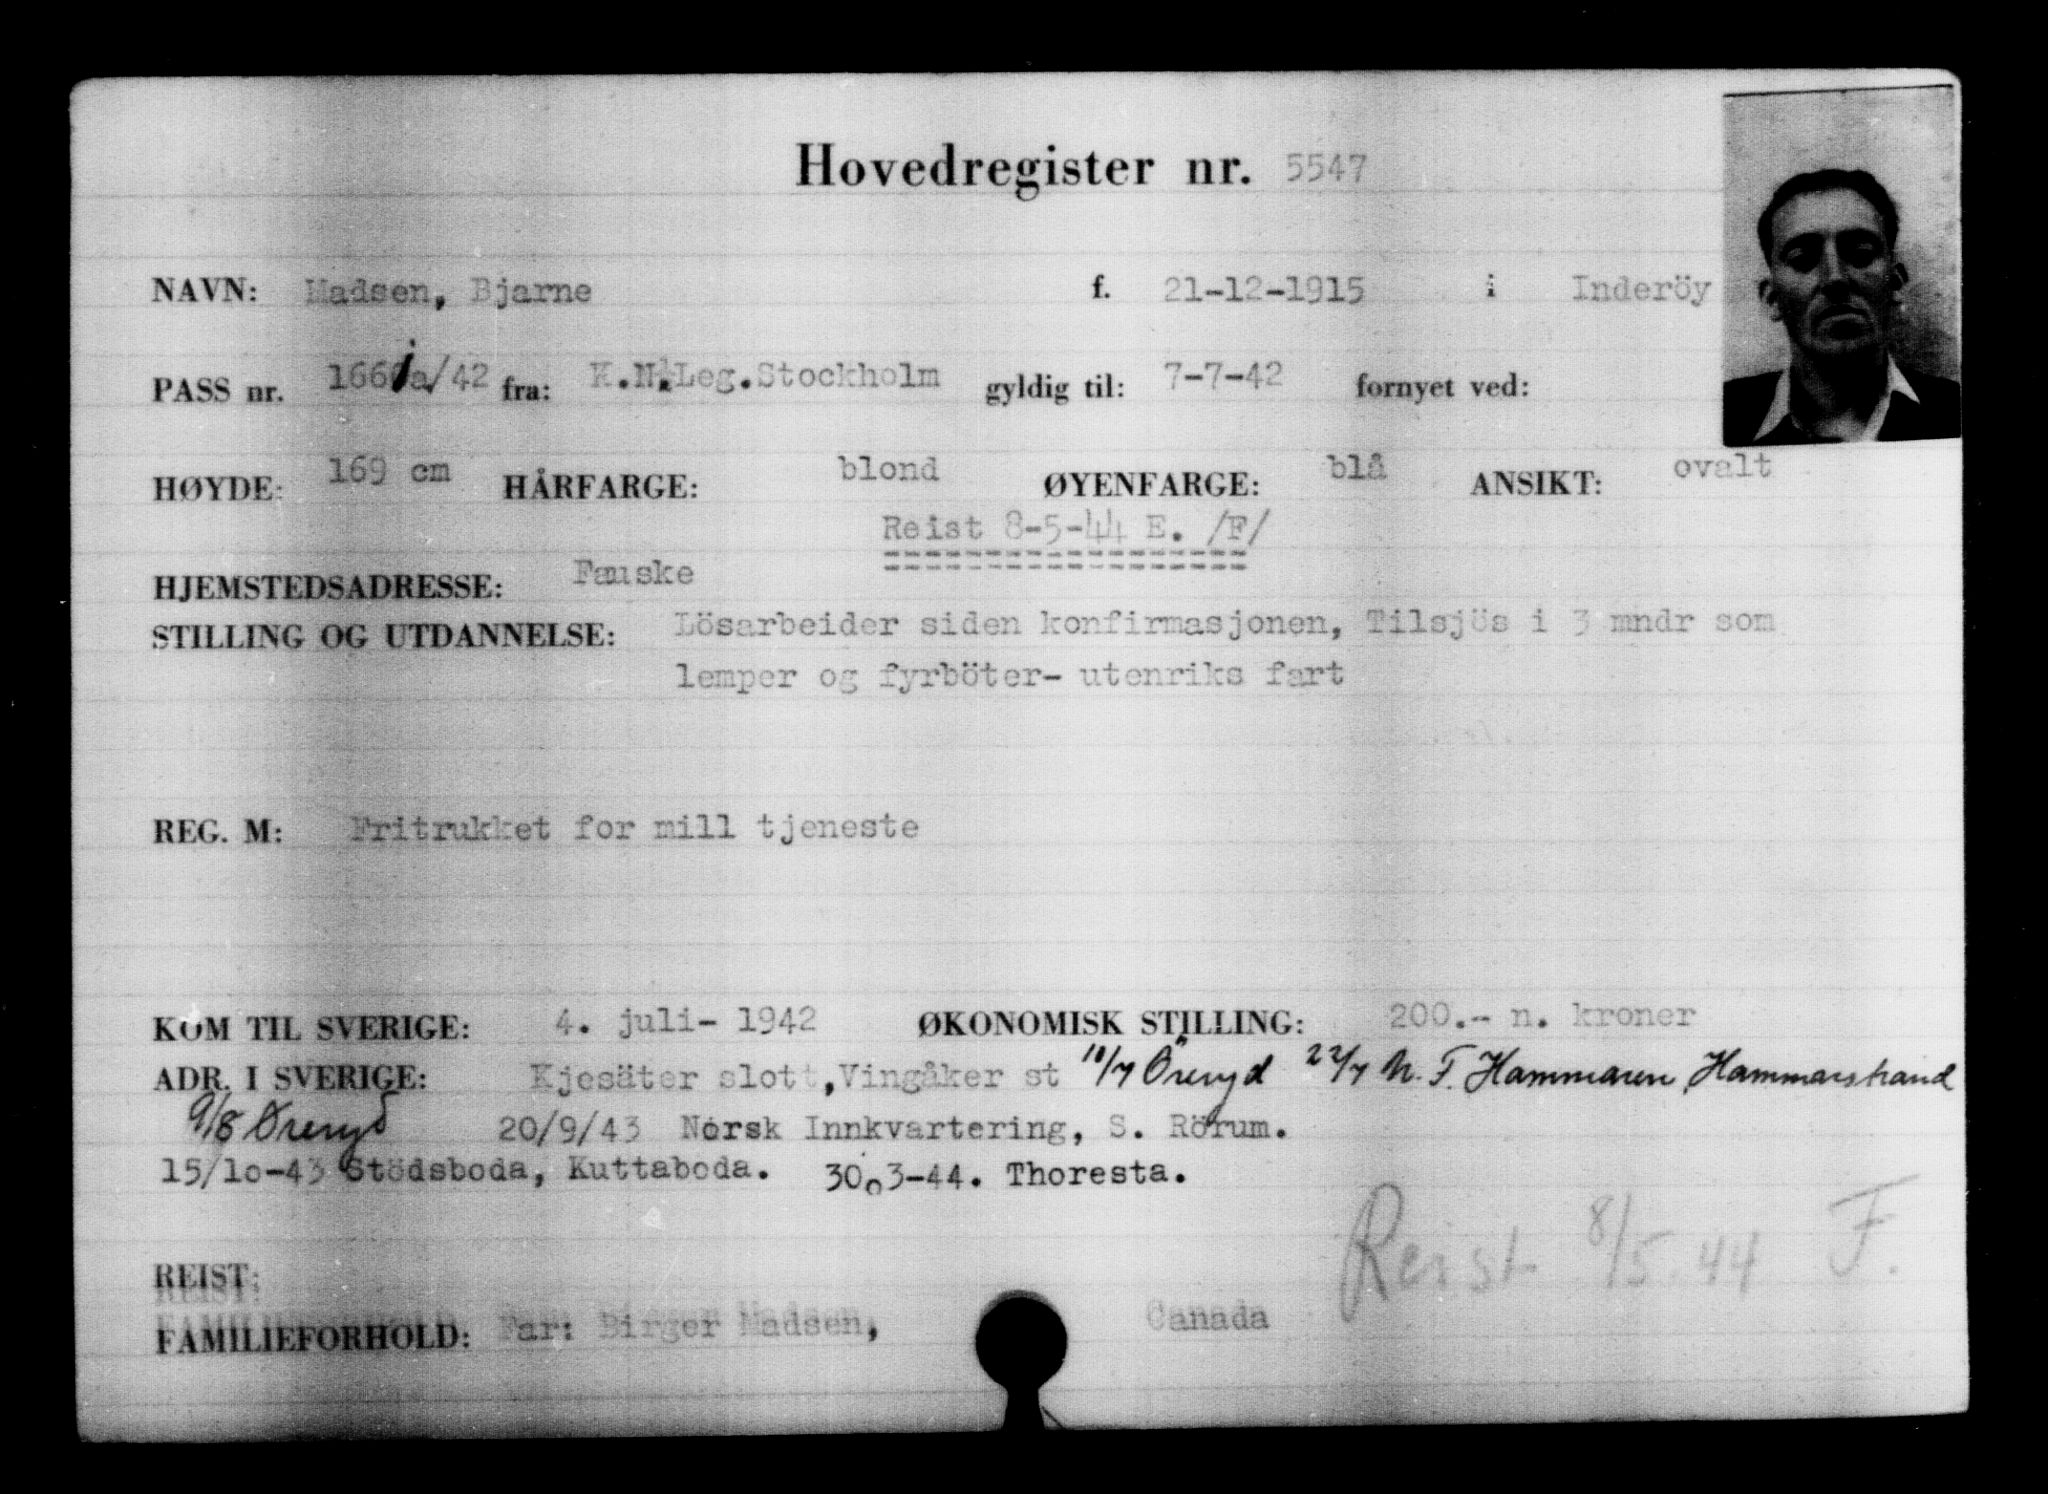 Hovedregister nr. 5547
NAVN: Madsen, Bjarne f. 21-12-1915 i Inderöy
PASS nr. /42 fra: K.N.Leg.Stockholm gyldig til: 7-7-42 fornyet ved:
HØYDE: 169 cm HÅRFARGE: blond ØYENFARGE: blå ANSIKT: ovalt
Reist 8-5-44 E. /F/
HJEMSTEDSADRESSE: Fauske
STILLING OG UTDANNELSE: Lösarbeider siden konfirmasjonen, Tilsjös i 3 mndr som
lemper og fyrböter- utenriks fart
REG. M: Fritrukket for mill tjeneste
KOM TIL SVERIGE: 4. juli- 1942 ØKONOMISK STILLING: 200.- n. kroner
ADR. I SVERIGE: Kjesäter slott, Vingåker st 10/7 Öreryd 22/7 N. F. Hammaren, Hammarstrand
9/8 Øreryd 20/9/43 Norsk Innkvartering, S. Rörum.
15/10-43 Stödsboda, Kuttaboda. 30.3-44. Thoresta.
Reist 8/5.44 F.
REIST:
FAMILIEFORHOLD: Far: Birger Madsen, Canada